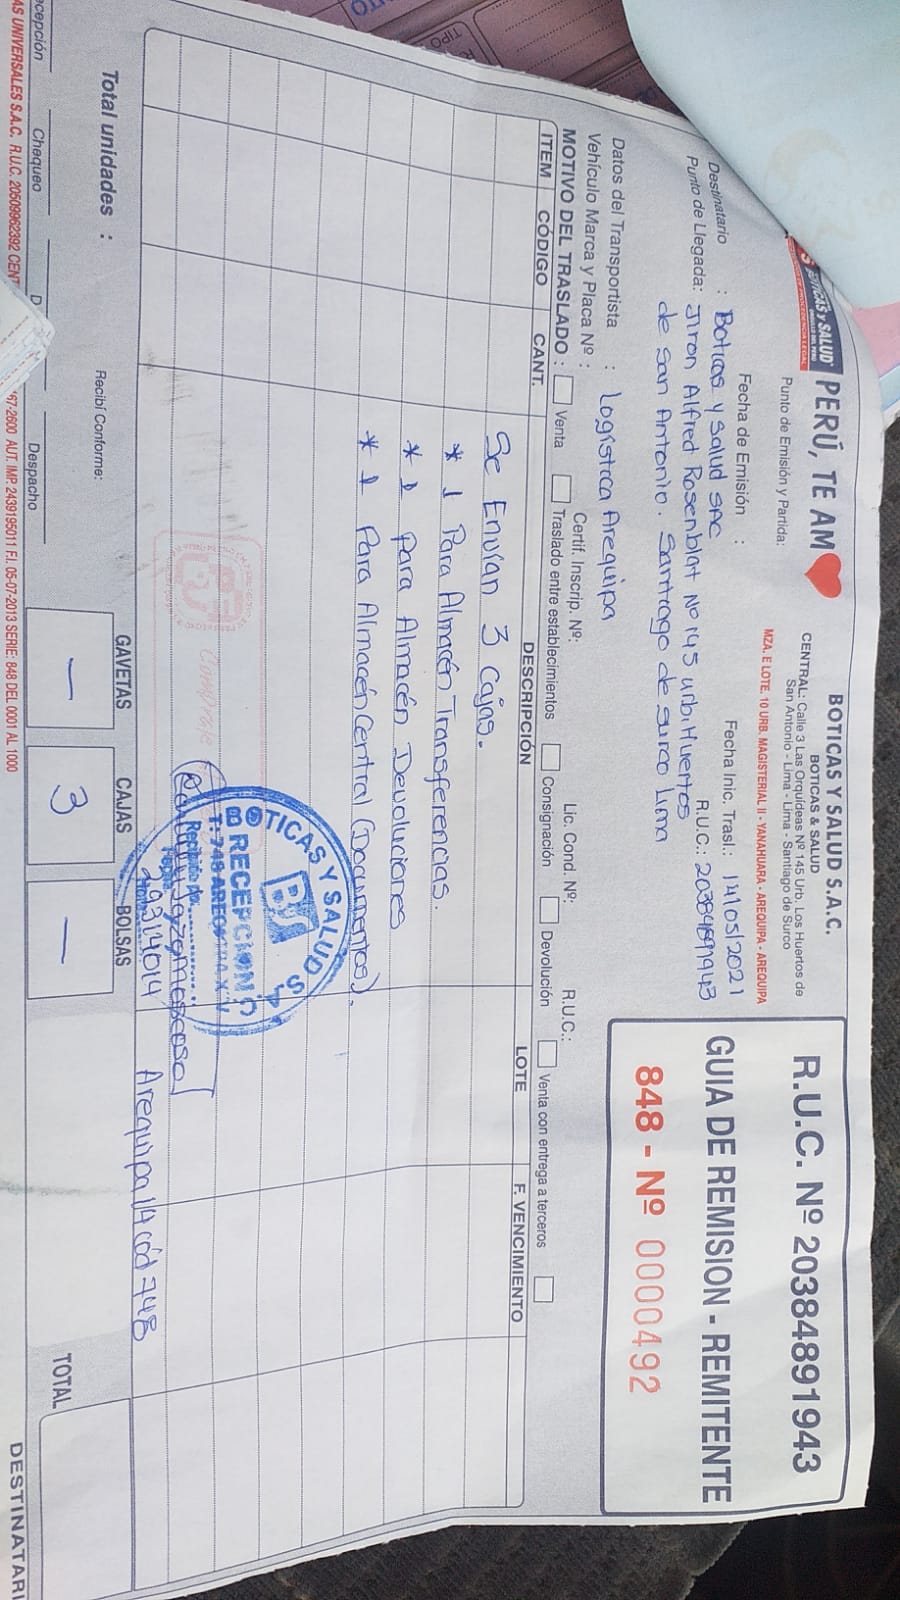 BOTICAS Y SALUD
PERÚ, TE AM
BOTICAS Y SALUD S.A.C.
BOTICAS & SALUD
CENTRAL: Calle 3 Las Orquídeas Nº 145 Urb. Los Huertos de
San Antonio - Lima - Lima - Santiago de Surco
Punto de Emisión y Partida:
MZA. E LOTE. 10 URB. MAGISTERIAL II - YANAHUARA - AREQUIPA - AREQUIPA
R.U.C. Nº 20384891943
GUIA DE REMISION - REMITENTE
848 - Nº 0000492
Fecha de Emisión :
Fecha Inic. Trasl.: 14/05/2021
Destinatario : Boticas y Salud SAC
R.U.C.: 20384891943
Punto de Llegada: Jiron Alfred Rosenblat Nº 145 urb. Huertos
de San Antonio. Santiago de Surco Lima
Datos del Transportista : Logística Arequipa
R.U.C.:
Vehículo Marca y Placa Nº :
Certif. Inscrip. Nº:
Lic. Cond. Nº:
MOTIVO DEL TRASLADO : Venta Traslado entre establecimientos Consignación Devolución Venta con entrega a terceros
ITEM CÓDIGO CANT. DESCRIPCIÓN LOTE F. VENCIMIENTO
Se Envían 3 Cajas.
* 1 Para Almacén Transferencias.
* 1 para Almacén Devoluciones
* 1 Para Almacén Central (Documentos).
BOTICAS Y SALUD
BS
RECEPCION
T: 748 AREQ
Recibido por
29314014 Arequipa 14 cód 748
Total unidades :
Recibí Conforme:
GAVETAS CAJAS BOLSAS
— 3 —
TOTAL
Chequeo
Despacho
AS UNIVERSALES S.A.C. R.U.C. 20509962392 CENT
67-2600 AUT. IMP. 2439195011 F.I. 05-07-2013 SERIE: 848 DEL 0001 AL 1000
DESTINATARI